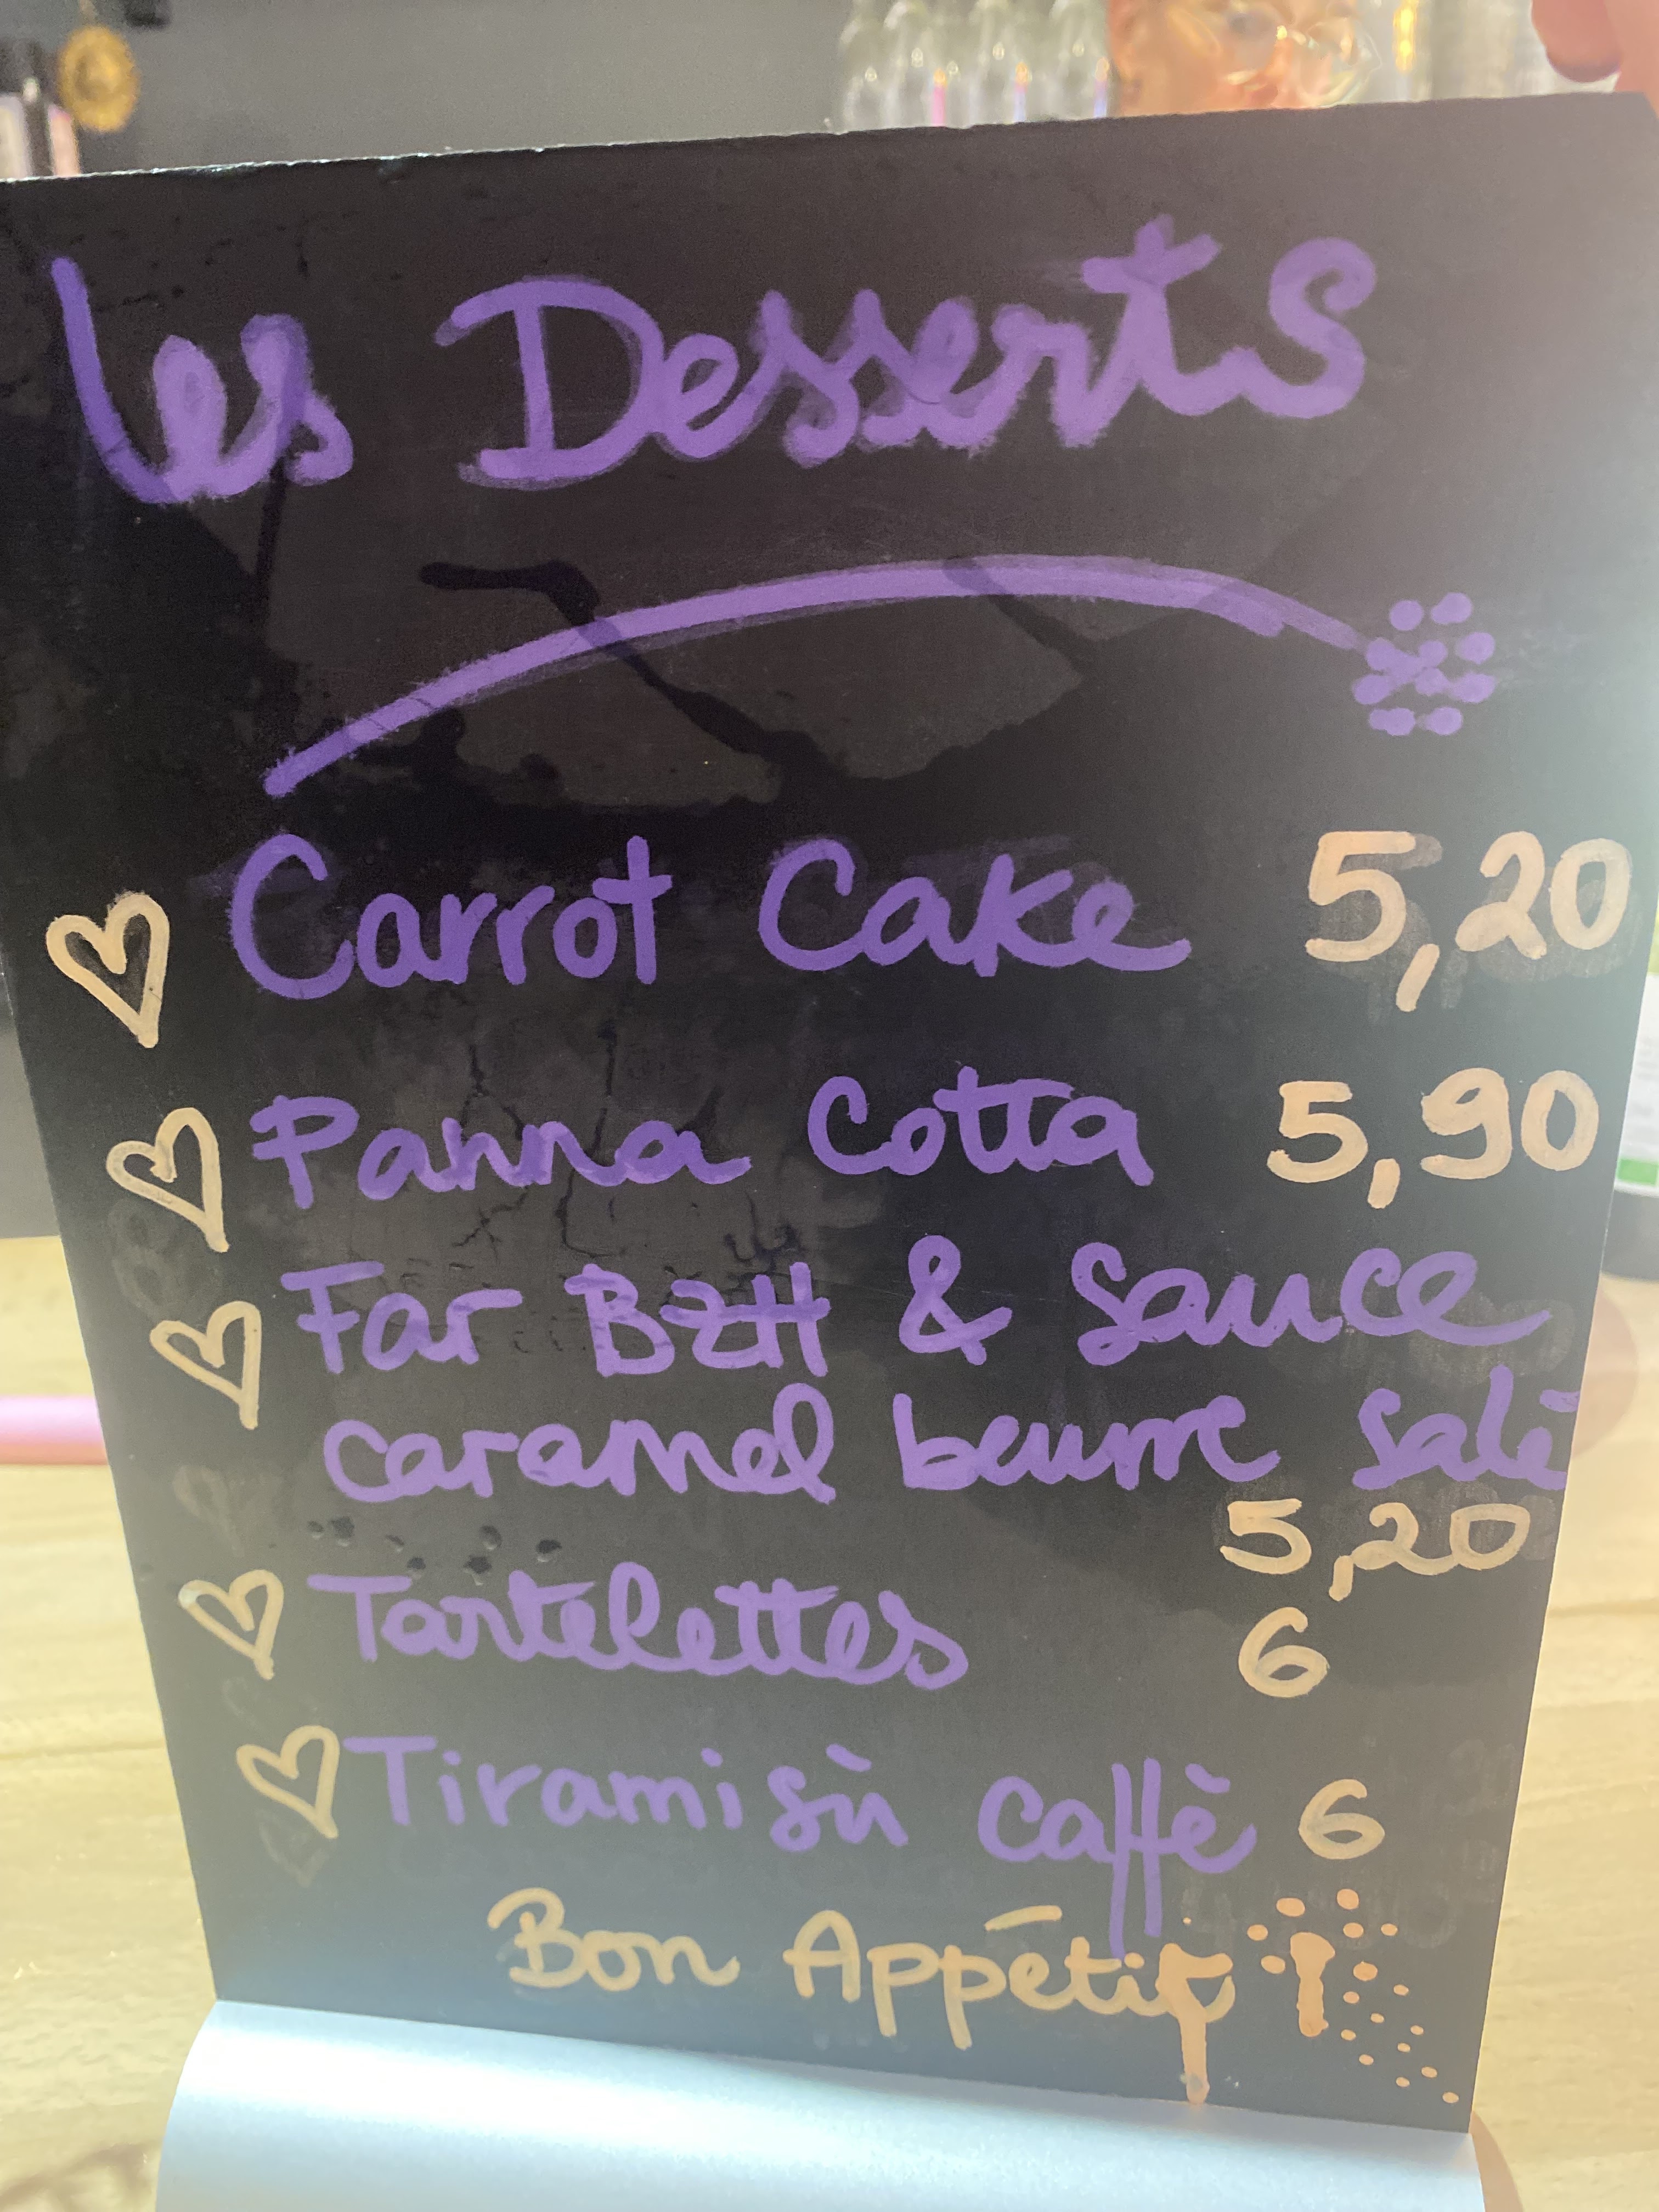 Les Desserts
Carrot Cake 5,20
Panna Cotta 5,90
Far BZH & Sauce
caramel beurre salé
5,20
Tartelettes 6
Tiramisù caffè 6
Bon Appétit !